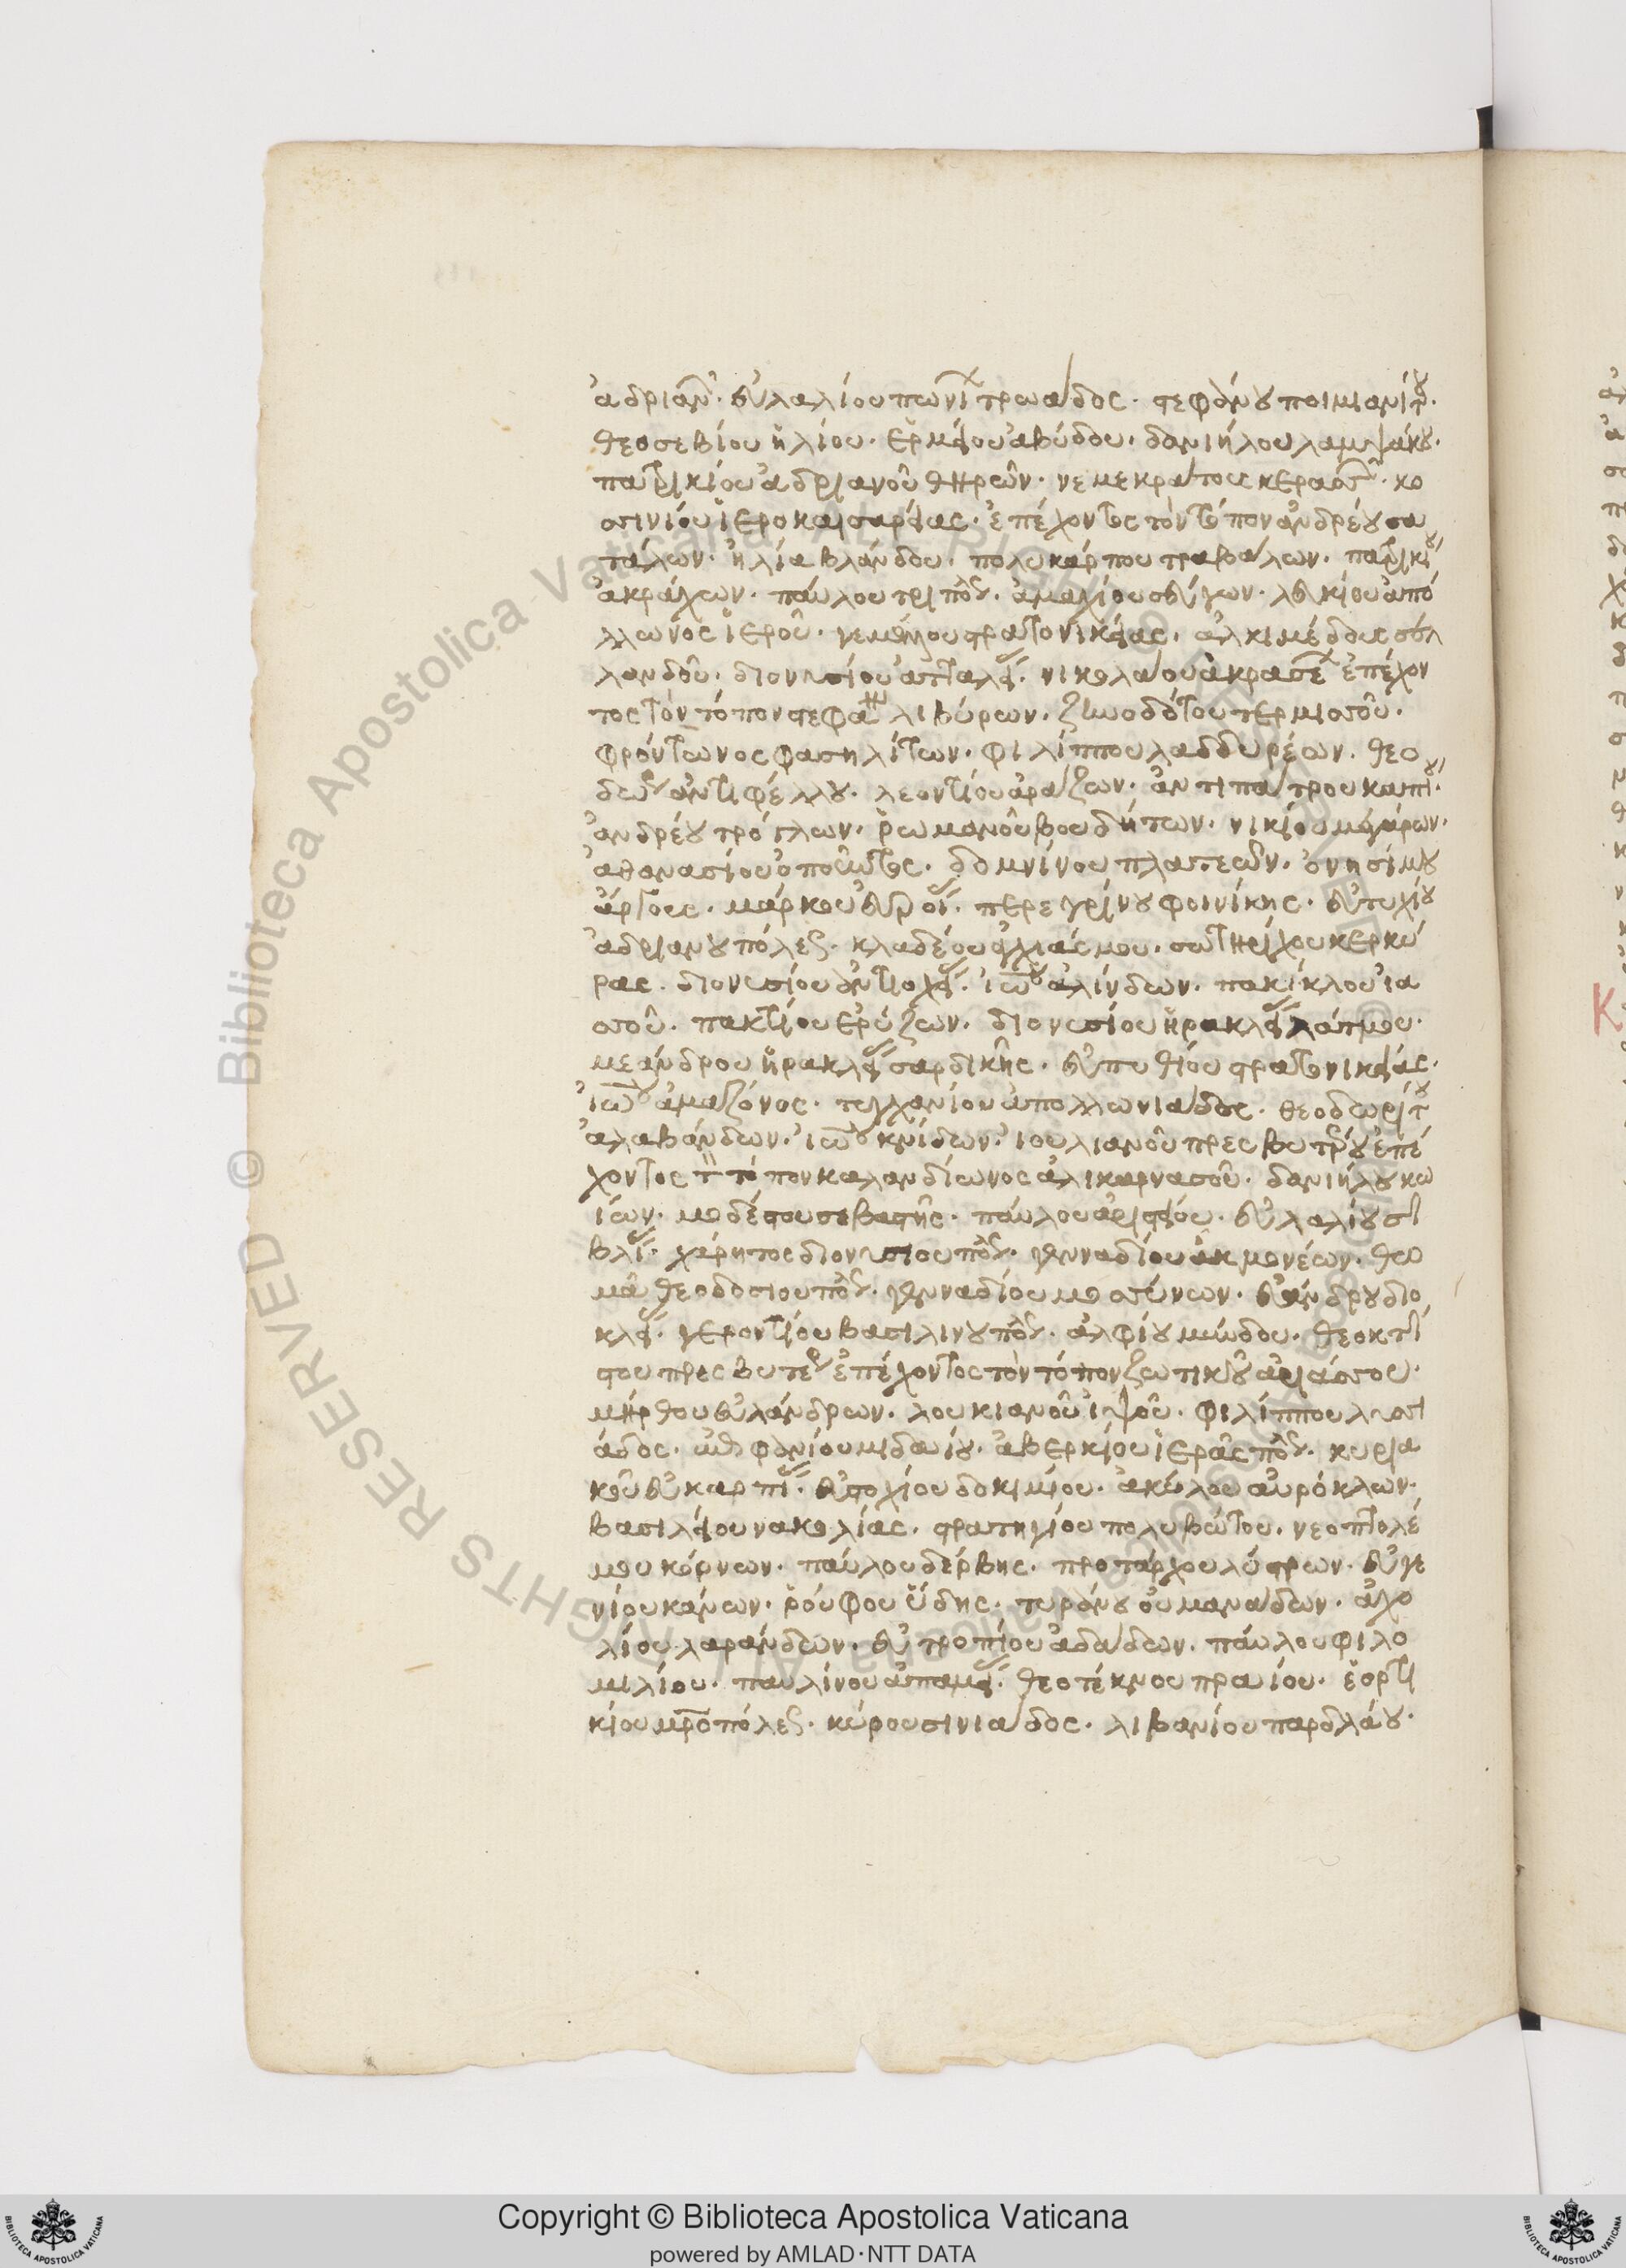 ἀδριαν. εὐλαλίου πωνι τρωάδος. στεφάνου ποιμανιτ.
θεοσεβίου ἠλίου. ἑρμείου ἀβύδου. δανιήλου λαμψάκου.
πατρικίου ἀδριανοῦ θηρῶν. νεμεκράτους κεραστ. κο
σινίου ἱεροκαισαρείας. ἐπέχοντος τὸν τόπον ἀνδρέου σα
τάλων. ἠλία βλάνδου. πολυκάρπου τραβάλων. πατρικί
ἀκράχων. παύλου τριπολ. ἀμαχίου σευίγων. λευκίου ἀπό
λλωνος ἱεροῦ. γεμέλλου στρατονικείας. ἀλκιμέδους σελ
λανδοῦ. διονυσίου ἀτταλεί. νικολάου ἀκρασ ἐπέχον
τος τὸν τόπον στεφαν λιβύρων. ζωοδότου τερμισοῦ.
φρόντωνος φασηλίτων. φιλίππου λαδδυρέων. θεο
δω ἀντιφέλλου. λεοντίου ἀράξων. ἀντιπάτρου καπι.
ἀνδρέου τρόπλων. ῥωμανοῦ βουδήτων. νικίου μεγάρων.
ἀθανασίου ὀποῦντος. δομνίνου πλατεῶν. ὀνησίμου
ἄργους. μάρκου εὐροί. περεγρίνου φοινίκης. εὐτυχίου
ἀδριανουπόλεως. κλαδέου ἀχιάσμου. σωτηρίχου κερκύ
ρας. διονυσίου ἀντιοχεί. ἰω ἀλίνδων. πακίκλου ἰα
σοῦ. πακτίου ἐρύζων. διονυσίου ἡρακλεί λάτμου.
μεάνδρου ἡρακλεί σαρδικῆς. εὐπυθίου στρατονικείας.
ἰω ἀμαζόνος. τυγχανίου ἀπολλωνιάδος. θεοδωρίτ
ἀλαβάνδων. ἰω κνίδων. ἰουλιανοῦ πρεσβυτρου ἐπέ
χοντος τ τόπον καλανδίωνος ἀλικαρνασοῦ. δανιήλου κω
ίων. μοδέστου σεβαστῆς. παύλου ἀριστείου. εὐλαλίου σι
βλί. χάρητος διονυσιουπολ. γενναδίου ἀκμονέων. θω
μᾶ θεοδοσιουπολ. γενναδίου μοσύνων. εὐάνδρου διο
κλεί. γεροντίου βασιλινουπολ. ἀλφίου μύνδου. θεοκτί
στου πρεσβυτε ἐπέχοντος τὸν τόπον ζωτικοῦ ἀριάσσου.
μήρθου εὐλάνδρων. λουκιανοῦ ἰψοῦ. φιλίππου λυσι
άδος. ἐπιφανίου μιδαίου. ἀβερκίου ἱεραςπολ. κυρια
κοῦ εὐκαρπί. εὐστοχίου δοκιμίου. ἀκύλου αὐρόκλων.
βασιλείου νακολίας. στρατηγίου πολυβώτου. νεοπτολέ
μου κόρνων. παύλου δέρβης. προτάρχου λύστρων. εὐγε
νίου κάνων. ῥούφου ὕδης. τυράνου οὐμανάδων. ἀχο
λίου λαράνδων. εὐτροπίου ἀδάδων. παύλου φιλο
μιλίου. παυλίνου ἀπαμεί. θεοτέκνου πραιου. ἑορτι
κίου μροπόλεως. κύρου σινιάδος. λιβανίου παραλάου.
Copyright © Biblioteca Apostolica Vaticana
powered by AMLAD·NTT DATA